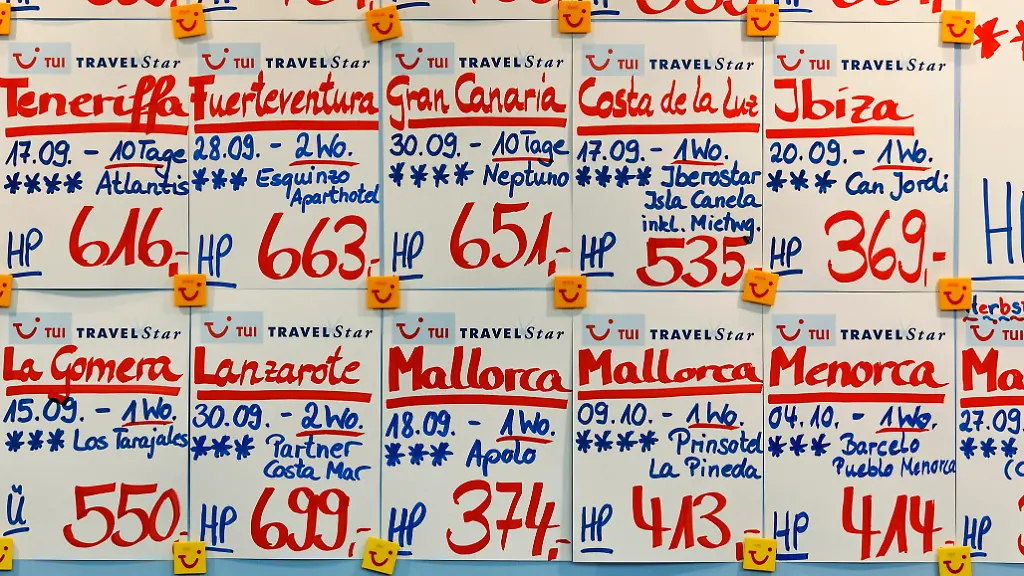 TUI TRAVELStar
Teneriffa
17.09. - 10 Tage
**** Atlantis
HP 616,-
TUI TRAVELStar
Fuerteventura
28.09. - 2 Wo.
*** Esquinzo
Aparthotel
HP 663,-
TUI TRAVELStar
Gran Canaria
30.09. - 10 Tage
**** Neptuno
HP 651,-
TUI TRAVELStar
Costa de la Luz
17.09. - 1 Wo.
**** Iberostar
Isla Canela
inkl. Mietwg.
HP 535
TUI TRAVELStar
Ibiza
20.09. - 1 Wo.
*** Can Jordi
HP 369,-
**
TUI TRAVELStar
La Gomera
15.09. - 1 Wo.
*** Los Tarajales
Ü 550,-
TUI TRAVELStar
Lanzarote
30.09. - 2 Wo.
*** Partner
Costa Mar
HP 699,-
TUI TRAVELStar
Mallorca
18.09. - 1 Wo.
*** Apolo
HP 374,-
TUI TRAVELStar
Mallorca
09.10. - 1 Wo.
**** Prinsotel
La Pineda
HP 413,-
TUI TRAVELStar
Menorca
04.10. - 1 Wo.
*** Barcelo
Pueblo Menorca
HP 414,-
Herbs
TUI
Ma
27.09.